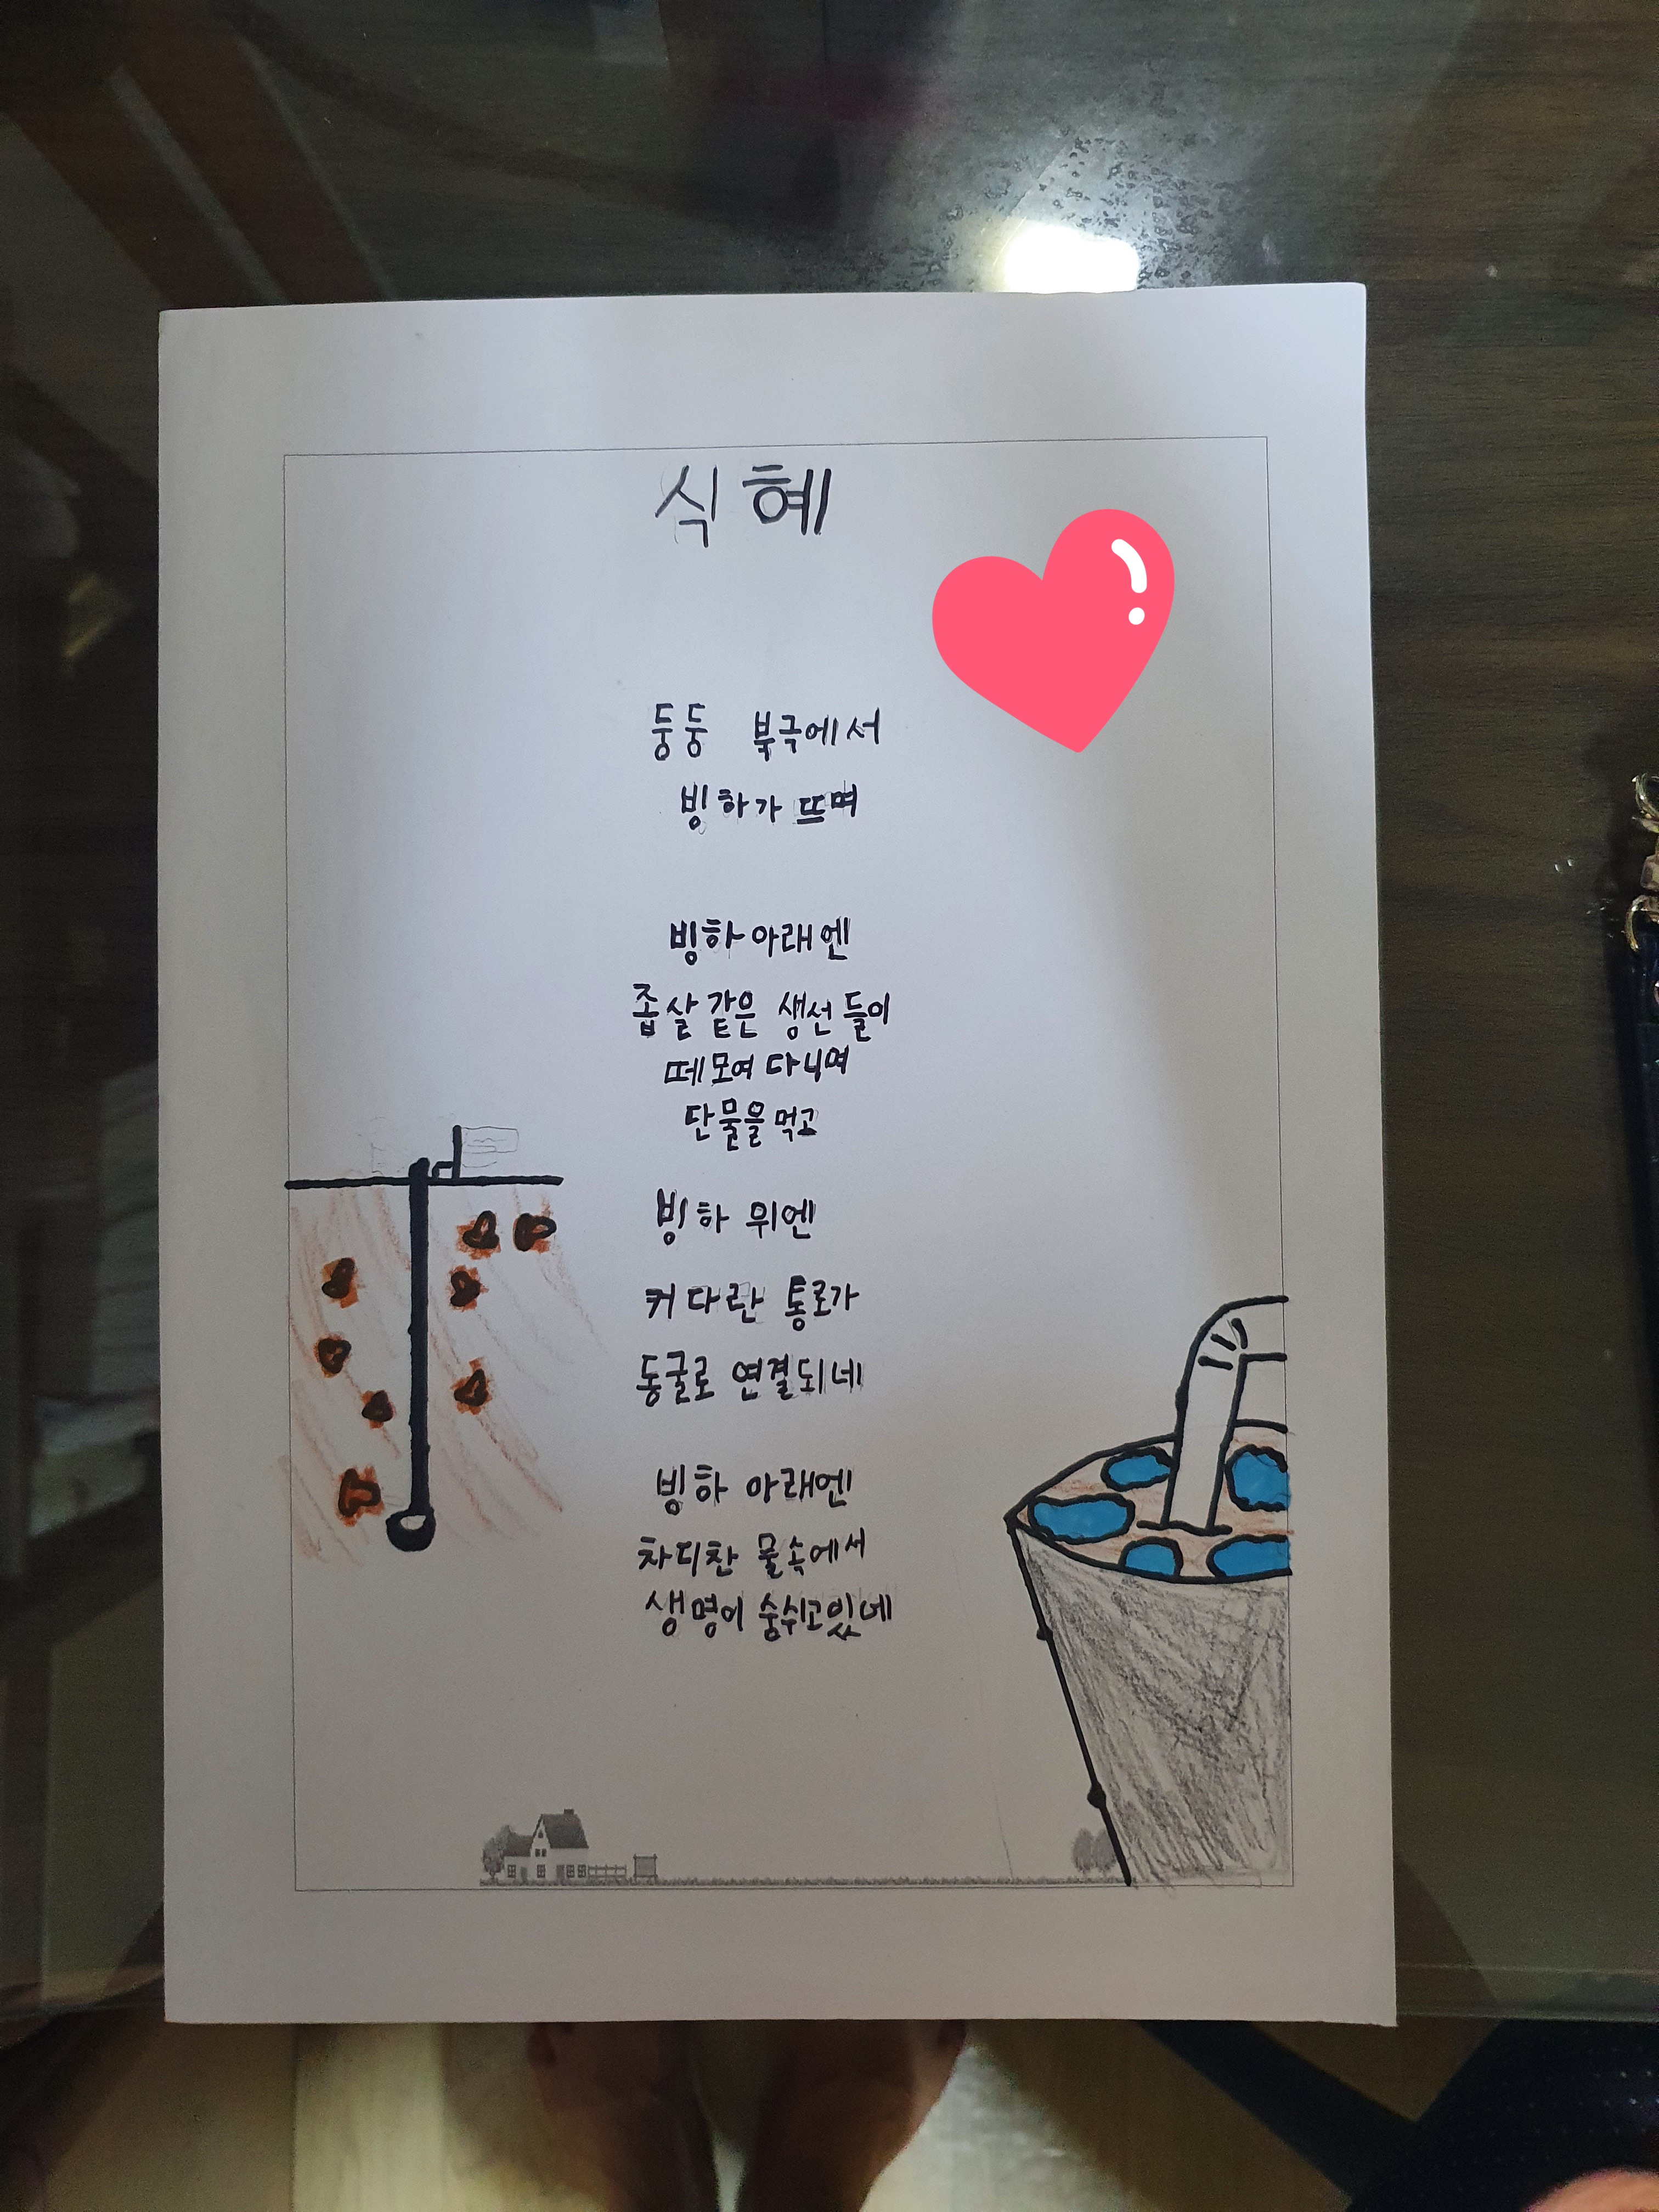 식혜
둥둥 북극에서
빙하가 뜨며
빙하 아래엔
좁살 같은 생선들이
떼모여 다니며
단물을 먹고
빙하 위엔
커다란 통로가
동굴로 연결되네
빙하 아래엔
차디찬 물속에서
생명이 숨쉬고있네